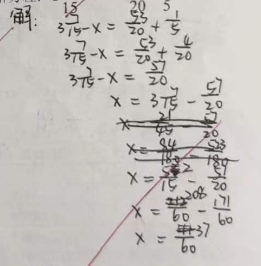 15 20 5
解: 3 7/15 - x = 53/20 + 1/5
3 7/15 - x = 53/20 + 4/20
3 7/15 - x = 57/20
x = 3 7/15 - 57/20
x = 52/15 - 57/20
x = 208/60 - 171/60
x = 37/60